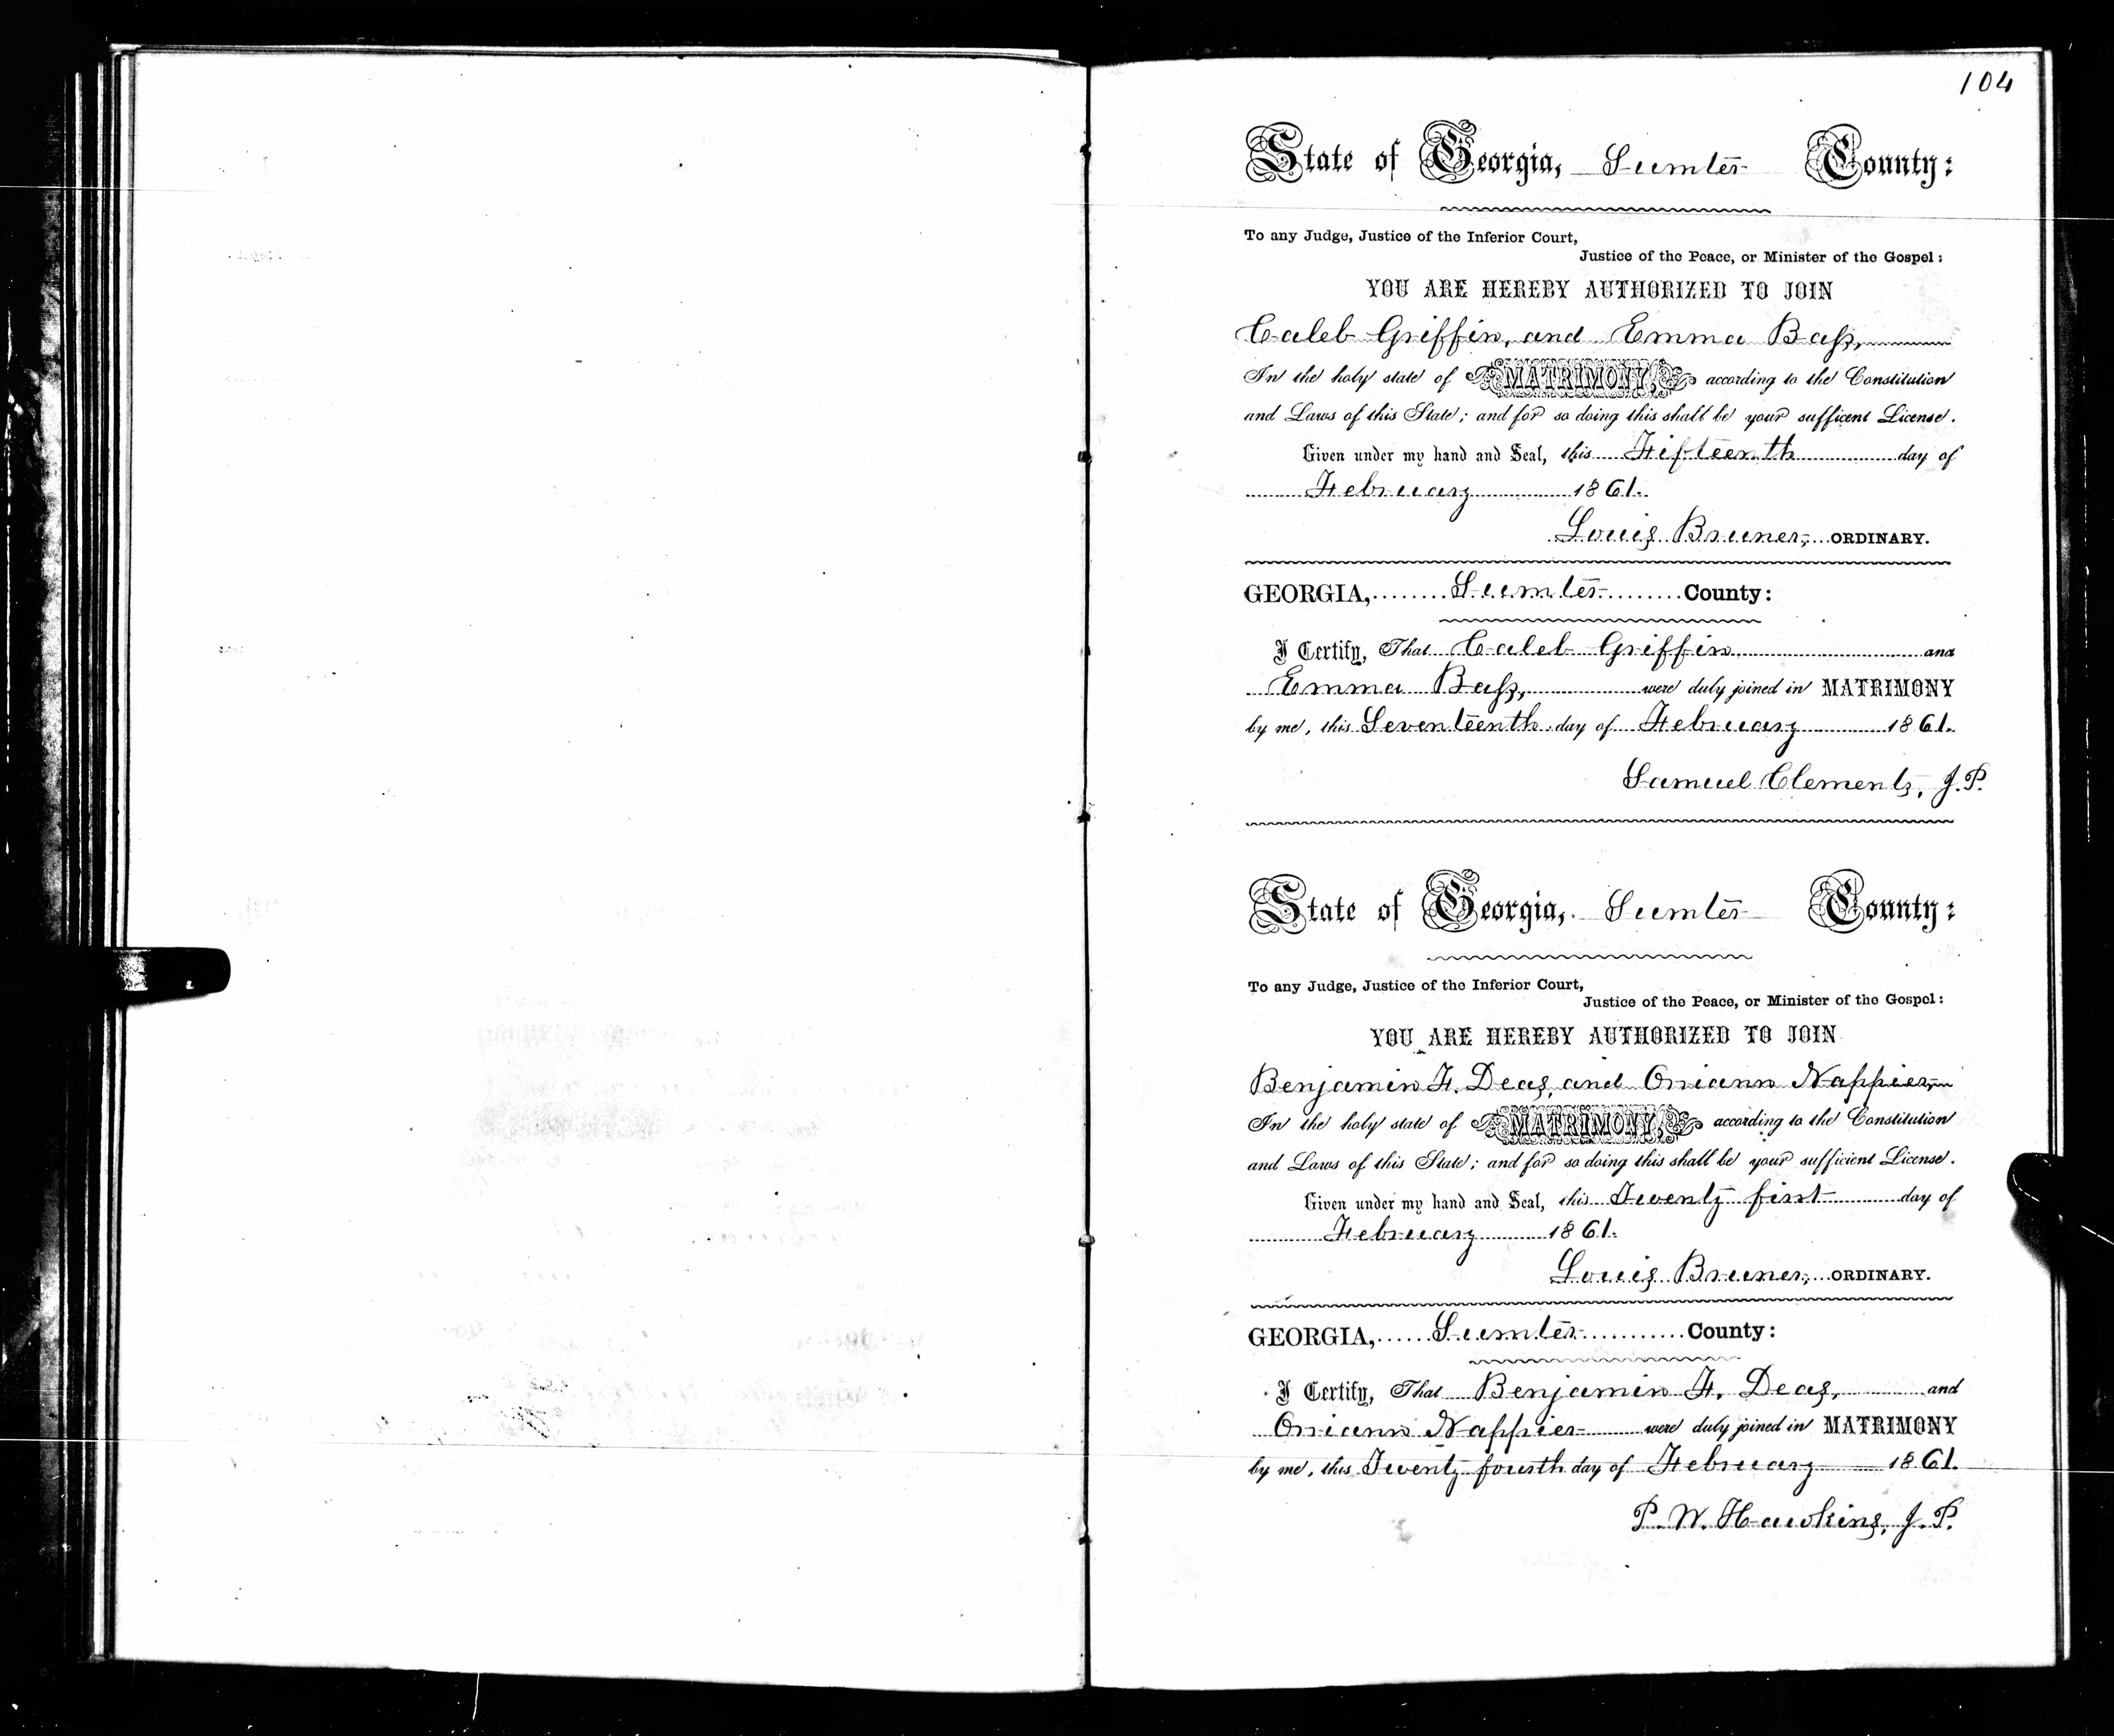 104
State of Georgia, Sumter County:
To any Judge, Justice of the Inferior Court,
Justice of the Peace, or Minister of the Gospel:
YOU ARE HEREBY AUTHORIZED TO JOIN
Caleb Griffin, and Emma Bass,
In the holy state of MATRIMONY, according to the Constitution
and Laws of this State; and for so doing this shall be your sufficent License.
Given under my hand and Seal, this Fifteenth day of
February 1861.
Louis Bruner, ORDINARY.
GEORGIA, Sumter County:
I Certify, That Caleb Griffin and
Emma Bass, were duly joined in MATRIMONY
by me, this Seventeenth day of February 1861.
Samuel Clements, J.P.
State of Georgia, Sumter County:
To any Judge, Justice of the Inferior Court,
Justice of the Peace, or Minister of the Gospel:
YOU ARE HEREBY AUTHORIZED TO JOIN
Benjamin F. Deas, and Oriann Nappier,
In the holy state of MATRIMONY, according to the Constitution
and Laws of this State; and for so doing this shall be your sufficient License.
Given under my hand and Seal, this Twenty first day of
February 1861.
Louis Bruner, ORDINARY.
GEORGIA, Sumter County:
I Certify, That Benjamin F. Deas, and
Oriann Nappier were duly joined in MATRIMONY
by me, this Twenty fourth day of February 1861.
P. W. Hawkins, J. P.